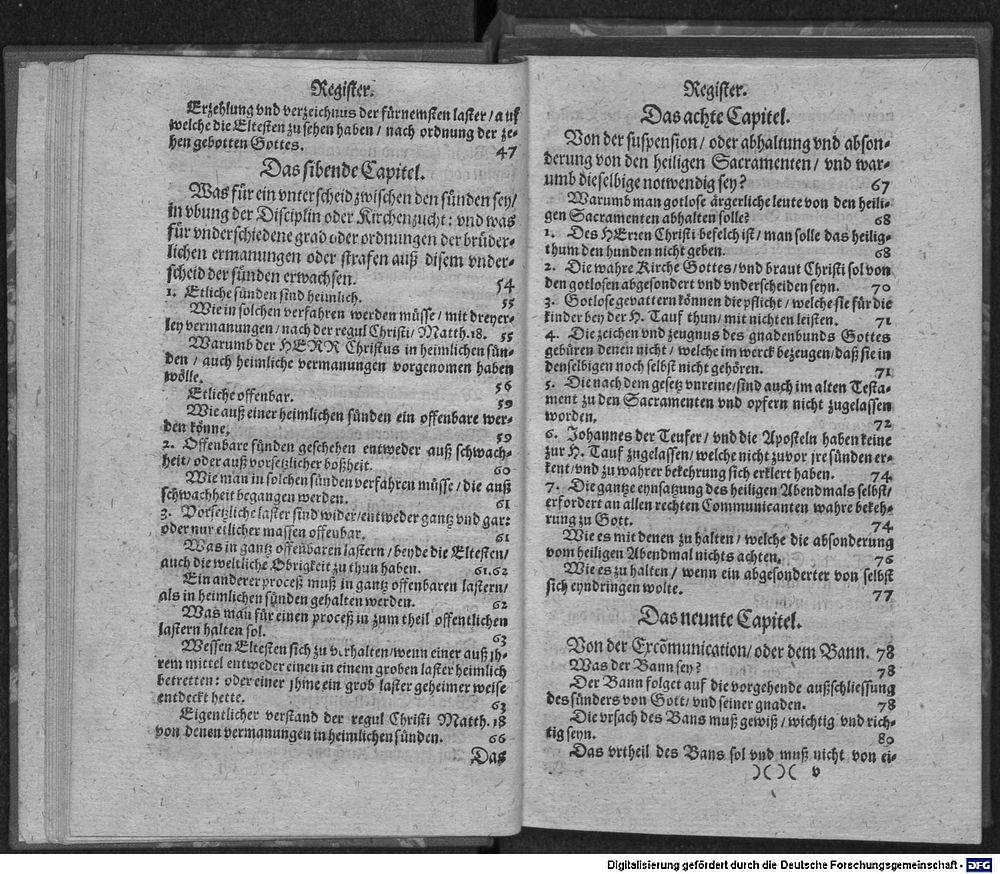 Register.
Erzehlung vnd verzeichnus der fürnemsten laster / auff
welche die Eltesten zu sehen haben / nach ordnung der ze-
hen gebotten Gottes. 47
Das sibende Capitel.
Was für ein vnterscheid zwischen den sünden sey /
in vbung der Disciplin oder Kirchenzucht: vnd was
für vnderschiedene grad oder ordnungen der brüder-
lichen ermanungen oder strafen auß disem vnder-
scheid der sünden erwachsen. 54
1. Etliche sünden sind heimlich. 55
Wie in solchen verfahren werden müsse / mit dreyer-
ley vermanungen / nach der regul Christi / Matth. 18. 55
Warumb der HERR Christus in heimlichen sün-
den / auch heimliche vermanungen vorgenomen haben
wölle. 56
Etliche offenbar. 59
Wie auß einer heimlichen sünden ein offenbare wer-
den könne. 59
2. Offenbare sünden geschehen entweder auß schwach-
heit / oder auß vorsetzlicher boßheit. 60
Wie man in solchen sünden verfahren müsse / die auß
schwachheit begangen werden. 61
3. Vorsetzliche laster sind wider / entweder gantz vnd gar:
oder nur etlicher massen offenbar. 61
Was in gantz offenbaren lastern / beyde die Eltesten /
auch die weltliche Obrigkeit zu thun haben. 61.62
Ein anderer proceß muß in gantz offenbaren lastern /
als in heimlichen sünden gehalten werden. 62
Was man für einen proceß in zum theil offentlichen
lastern halten sol. 63
Wessen Eltesten sich zu verhalten / wenn einer auß jh-
rem mittel entweder einen in einem groben laster heimlich
betretten: oder einer jhme ein grob laster geheimer weise
entdeckt hette. 63
Eigentlicher verstand der regul Christi Matth. 18
von denen vermanungen in heimlichen sünden. 66
Das
Register.
Das achte Capitel.
Von der suspension / oder abhaltung vnd abson-
derung von den heiligen Sacramenten / vnd war-
umb dieselbige notwendig sey? 67
Warumb man gotlose ärgerliche leute von den heili-
gen Sacramenten abhalten solle? 68
1. Des HErren Christi befelch ist / man solle das heilig-
thum den hunden nicht geben. 68
2. Die wahre Kirche Gottes / vnd braut Christi sol von
den gotlosen abgesondert vnd vnderscheiden seyn. 70
3. Gotlose gevattern können die pflicht / welche sie für die
kinder bey der H. Tauf thun / mit nichten leisten. 71
4. Die zeichen vnd zeugnus des gnadenbunds Gottes
gebüren denen nicht / welche im werck bezeugen / daß sie in
denselbigen noch selbst nicht gehören. 71
5. Die nach dem gesetz vnreine / sind auch im alten Testa-
ment zu den Sacramenten vnd opfern nicht zugelassen
worden. 72
6. Johannes der Teufer / vnd die Aposteln haben keine
zur H. Tauf zugelassen / welche nicht zuvor jre sünden er-
kent / vnd zu wahrer bekehrung sich erklert haben. 74
7. Die gantze eynsatzung des heiligen Abendmals selbst /
erfordert an allen rechten Communicanten wahre bekeh-
rung zu Gott. 74
Wie es mit denen zu halten / welche die absonderung
vom heiligen Abendmal nichts achten. 76
Wie es zu halten / wenn ein abgesonderter von selbst
sich eyndringen wolte. 77
Das neunte Capitel.
Von der Excõmunication / oder dem Bann. 78
Was der Bann sey? 78
Der Bann folget auf die vorgehende außschliessung
des sünders von Gott / vnd seiner gnaden. 78
Die vrsach des Bans muß gewiß / wichtig vnd rich-
tig seyn. 80
Das vrtheil des Bans sol vnd muß nicht von ei-
)( )( v
Digitalisierung gefördert durch die Deutsche Forschungsgemeinschaft - DFG